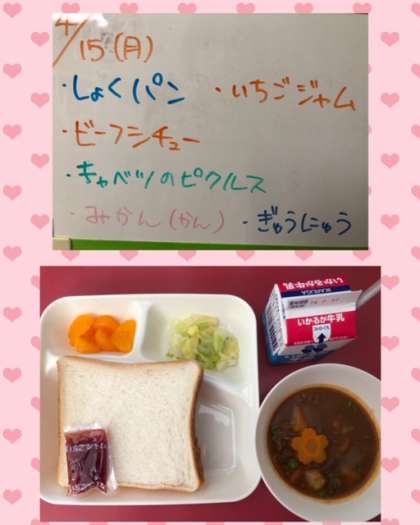 4/15(月)
・しょくパン ・いちごジャム
・ビーフシチュー
・キャベツのピクルス
・みかん(かん) ・ぎゅうにゅう
いかるが牛乳
いかるが牛乳